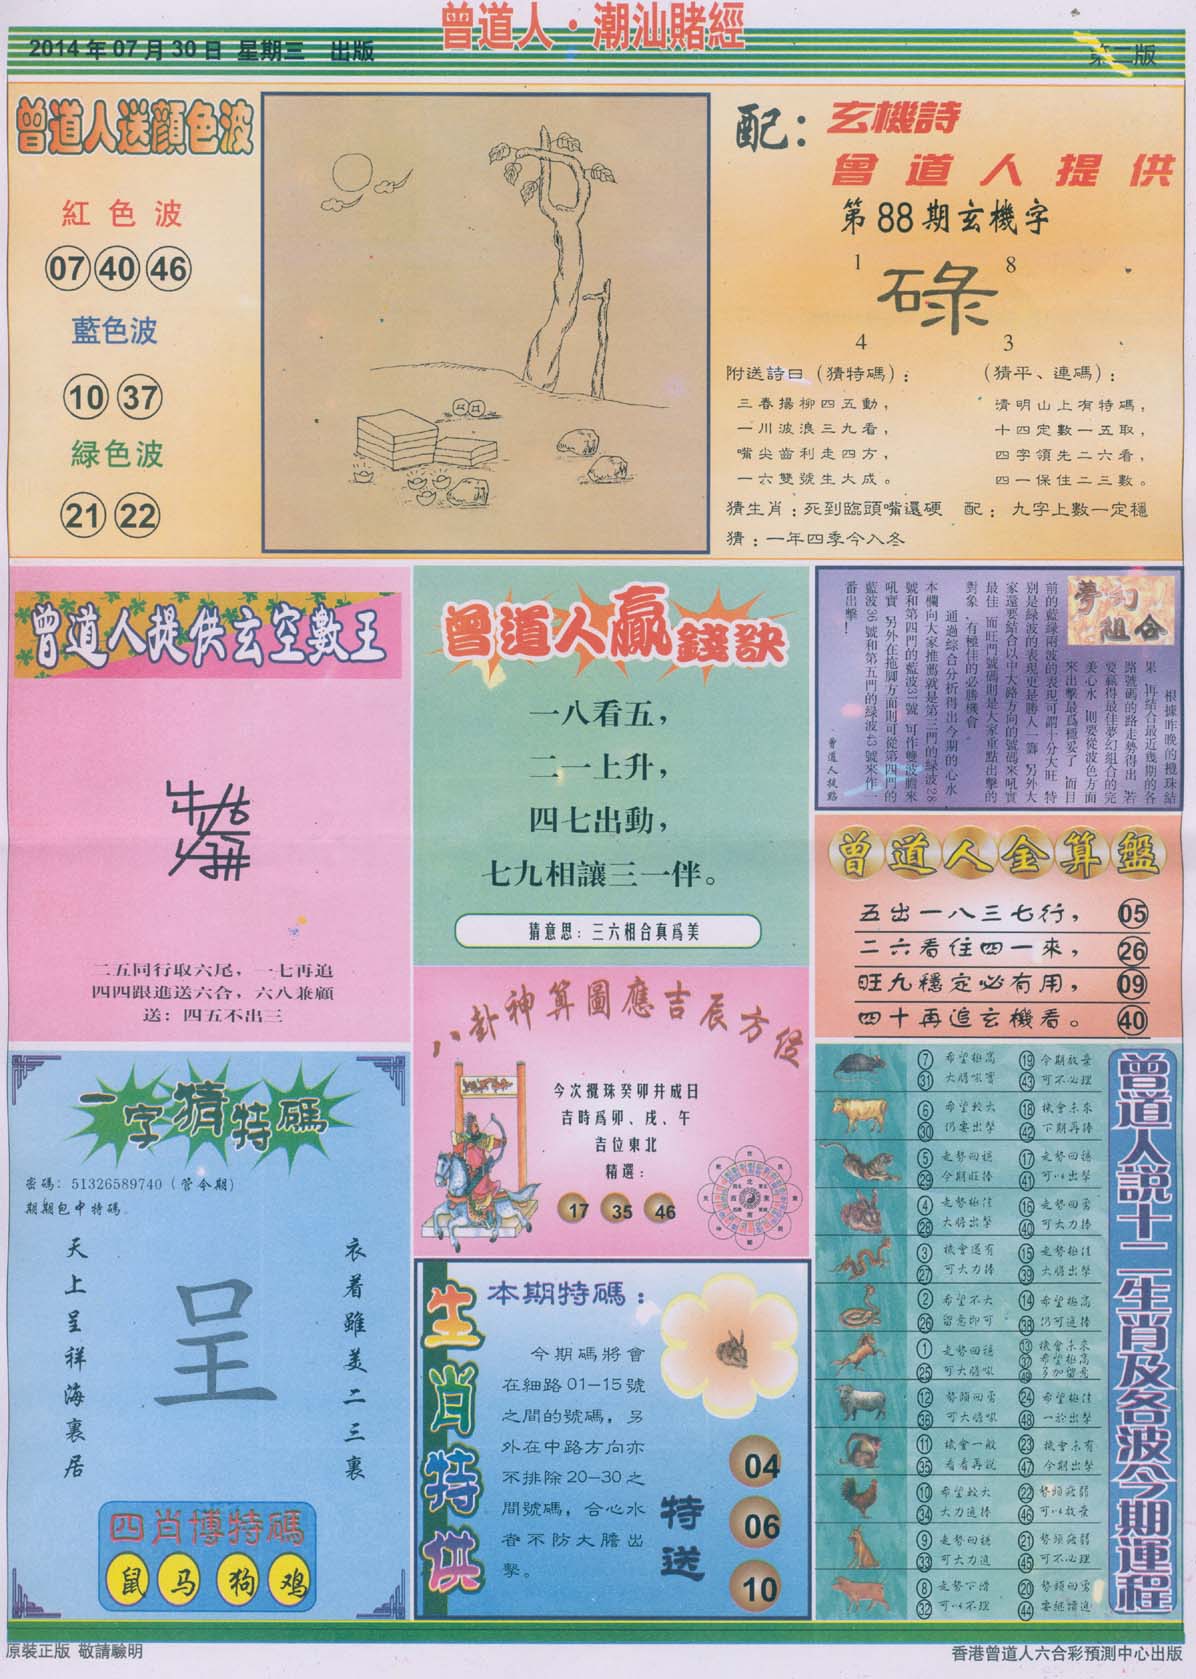 曾道人·潮汕賭經
2014年07月30日 星期三 出版
第二版
曾道人送顏色波
紅色波
07 40 46
藍色波
10 37
緑色波
21 22
配：玄機詩
曾道人提供
第88期玄機字
1 8
碌
4 3
附送詩曰（猜特碼）：
三春揚柳四五動，
一川波浪三九看，
嘴尖齒利走四方，
一六雙號生大成。
（猜平、連碼）：
清明山上有特碼，
十四定數一五取，
四字領先二六看，
四一保住二三數。
猜生肖：死到臨頭嘴還硬 配：九字上數一定穩
猜：一年四季今入冬
曾道人提供玄空數王
二五同行取六尾，一七再追
四四跟進送六合，六八兼顧
送：四五不出三
曾道人贏錢訣
一八看五，
二一上升，
四七出動，
七九相讓三一伴。
猜意思：三六相合真爲美
夢幻組合
根據昨晚的攪珠結
果，再結合最近幾期的各
路號碼的路走勢得出，若
要贏得最佳夢幻組合的完
美心水，則要從波色方面
來出擊最爲穩妥了，而目
前的藍緑兩波的表現可謂十分大旺，特
别是緑波的表現更是勝人一籌，另外大
家還要結合以中大路方向的號碼來吼實
最佳，而旺門號碼則是大家重點出擊的
對象，有極佳的必勝機會。
通過綜合分析得出今期的心水，
本欄向大家推薦就是第三門的緑波28
號和第四門的藍波31號，可作雙波膽來
吼實，另外在拖脚方面則可從第四門的
藍波36號和第五門的緑波43號來作一
番出擊！
曾道人提點
曾道人金算盤
五出一八三七行， 05
二六看住四一來， 26
旺九穩定必有用， 09
四十再追玄機看。 40
八卦神算圖應吉辰方位
今次攪珠癸卯井成日
吉時爲卯、戌、午
吉位東北
精選：
17 35 46
一字猜特碼
密碼：51326589740（管今期）
期期包中特碼。
天上呈祥海裏居
呈
衣着雖美二三裏
四肖博特碼
鼠 马 狗 鸡
生肖特供
本期特碼：
今期碼將會
在細路01-15號
之間的號碼，另
外在中路方向亦
不排除20-30之
間號碼，合心水
者不防大膽出
擊。
特送
04
06
10
曾道人說十二生肖及各波今期運程
7 31 希望極高 大膽吼實 19 43 今期放棄 可不必理
6 30 希望較大 仍要出擊 18 42 機會未來 下期再捧
5 29 走勢回穩 今期旺捧 17 41 走勢回穩 可以出擊
4 28 走勢極佳 大膽出擊 16 40 走勢回勇 可大力捧
3 27 機會還有 可大力捧 15 39 走勢極佳 大膽出擊
2 26 希望不大 留意即可 14 38 希望極高 仍可追捧
1 25 走勢回穩 可大膽吼 13 37 49 機會未來 希望極高 多加留意
12 36 勢頭回勇 可大膽吼 24 48 希望極佳 一於出擊
11 35 機會一般 看看再說 23 47 機會未有 今期出擊
10 34 希望較大 大力追捧 22 46 勢頭疲弱 可以放棄
9 33 走勢回穩 可大力追 21 45 勢頭疲弱 可不必理
8 32 走勢下滑 可以不理 20 44 勢頭回勇 要繼續追
原裝正版 敬請驗明
香港曾道人六合彩預測中心出版